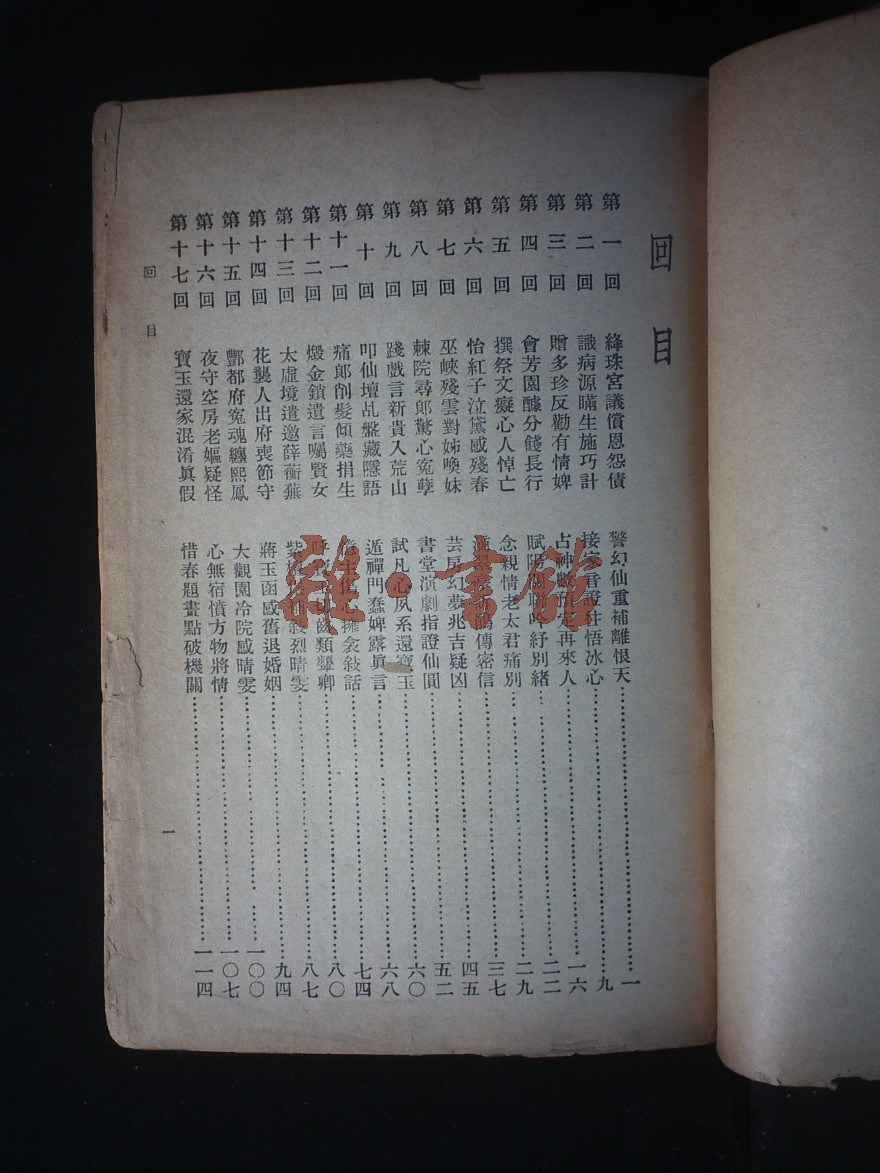 回目
第一回 絳珠宮議償恩怨債 警幻仙重補離恨天 一
第二回 識病源瞞生施巧計 接 言證 悟冰心 九
第三回 贈多珍反勸有情婢 占神 預定再來人 一六
第四回 會芳園醵分餞長行 賦陽關聯吟紓別緒 二二
第五回 撰祭文癡心人悼亡 念親情老太君痛別 二九
第六回 怡紅子泣黛感殘春 傳密信 三七
第七回 巫峽殘雲對姊喚妹 芸 幻夢兆吉疑凶 四五
第八回 棘院尋郎驚心寃孽 書堂演劇指證仙圓 五二
第九回 踐戲言新貴入荒山 試凡心夙系還寶玉 六〇
第十回 叩仙壇乩盤藏隱語 遁禪門蠢婢露眞言 六八
第十一回 痛郎削髮傾藥捐生 擁衾敍話 七四
第十二回 燬金鎖遺言囑賢女 齒類顰卿 八〇
第十三回 太虛境遣邀薛蘅蕪 紫 烈晴雯 八七
第十四回 花襲人出府喪節守 蔣玉函感舊退婚姻 九四
第十五回 酆都府寃魂纏熙鳳 大觀園冷院感晴雯 一〇〇
第十六回 夜守空房老嫗疑怪 心無宿憤方物將情 一〇七
第十七回 寶玉還家混淆眞假 惜春題畫點破機關 一一四
回目
一
雜·書館